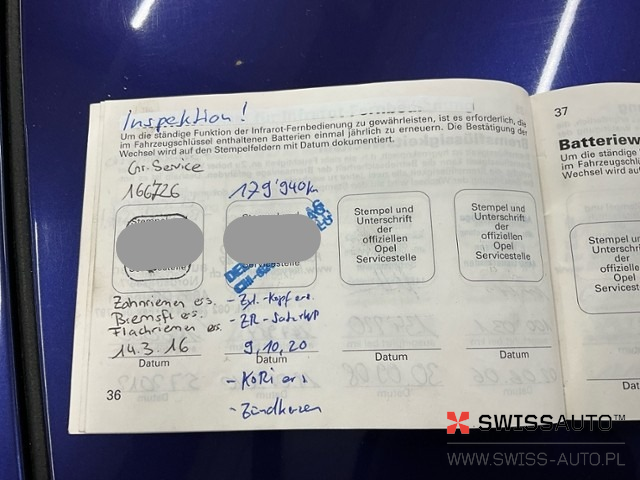 Inspektion!
Um die ständige Funktion der Infrarot-Fernbedienung zu gewährleisten, ist es erforderlich, die
im Fahrzeugschlüssel enthaltenen Batterien einmal jährlich zu erneuern. Die Bestätigung der
Wechsel wird auf den Stempelfeldern mit Datum dokumentiert.
Gr. Service
166726
179'940km
Stempel und
Unterschrift
der
offiziellen
Opel
Servicestelle
Stempel und
Unterschrift
der
offiziellen
Opel
Servicestelle
Servicestelle
Servicestelle
Zahnriemen es.
Bremsfl es.
Flachriemen es.
14.3.16
Datum
- Zyl.-Kopf
- ZR-
9.10.20
Datum
- KeRi ers
- Zündkerzen
Datum
Datum
36
37
Batteriew
Um die ständige
im Fahrzeugschl
Wechsel wird auf
Stempel und
Unterschrift
der
offiziellen
Opel
Servicestelle
SWISSAUTO™
WWW.SWISS-AUTO.PL